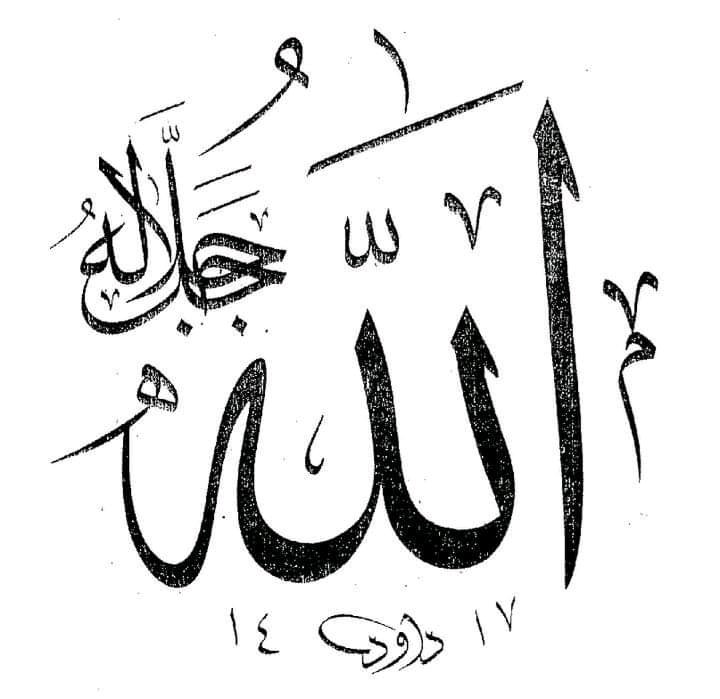 اللّٰهُ
جَلَّ جَلَالُهُ
١٤ داود ١٧